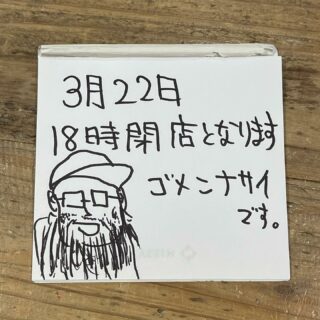 3月22日
18時閉店となります
ゴメンナサイ
です。